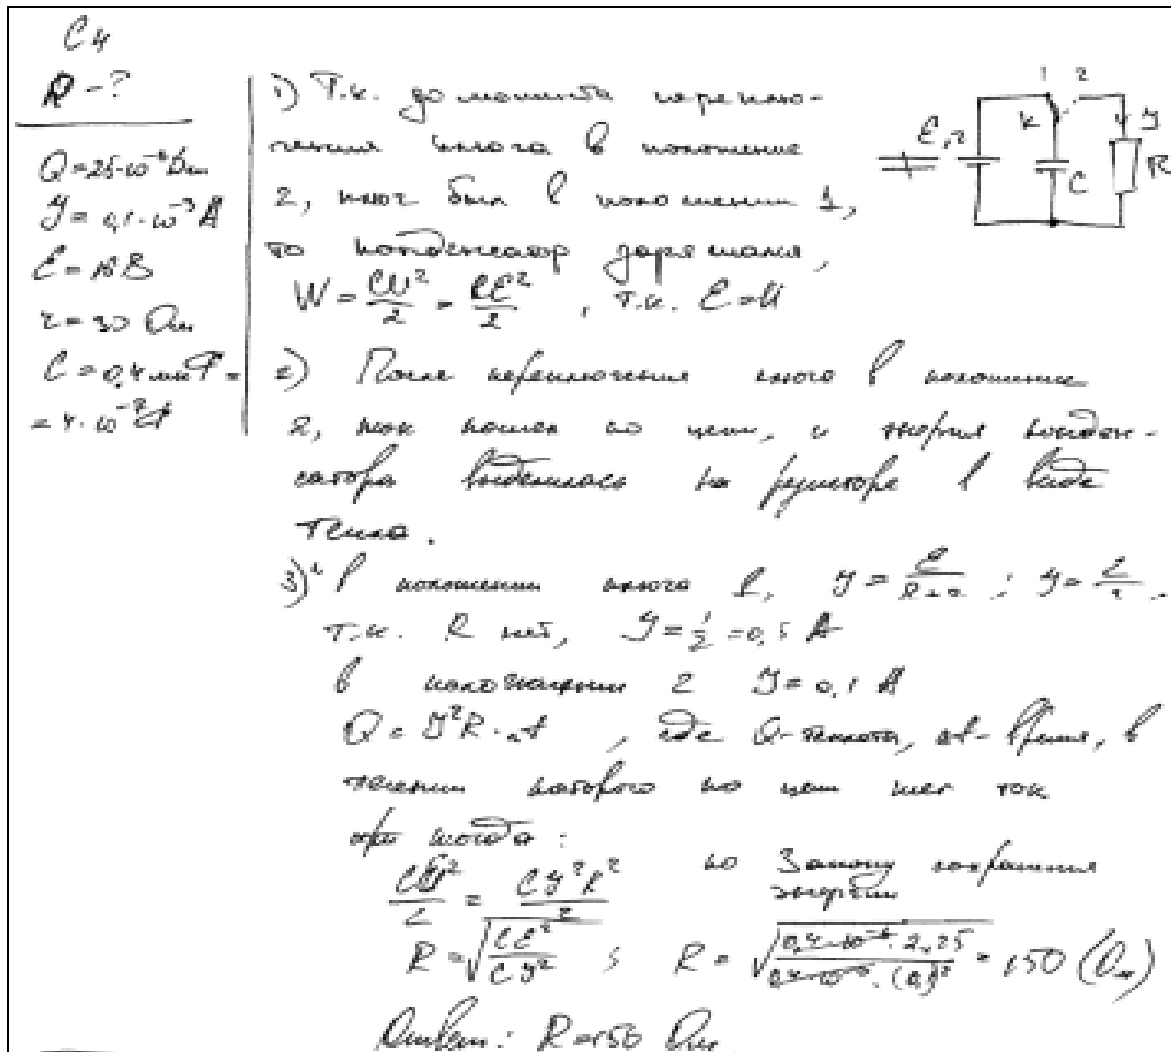 C4
R - ?
Q = 25·10⁻⁶ Дж
J = 0,1·10⁻³ А
r = 30 Ом
C = 0,4 мкФ =
= 4·10⁻⁷ Ф
1) Т.к. до момента переклю-
чения ключа в положение
2, ключ был в положении 1,
то конденсатор заряжался,
W = CU²/2 = CE²/2 , т.к. E = U
1 2
K
E, r
C
J
R
2) После переключения ключа в положение
2, ток пошел по цепи, и энергия конден-
сатора выделилась на резисторе в виде
тепла.
3) В положении ключа 1, J = E/(R+r) ;
т.к. R нет, = 0,5 А
в положении 2 J = 0,1 А
Q = J²R·Δt , где Q - теплота, Δt - время, в
течении которого по цепи шел ток
тогда:
CU²/2 = CJ²R²/2 по Закону сохранения
энергии
R = √(CE²/CJ²) ; R = √(0,4·10⁻⁶·2,25/0,4·10⁻⁶·(0,1)²) = 150 (Ом)
Ответ: R = 150 Ом.